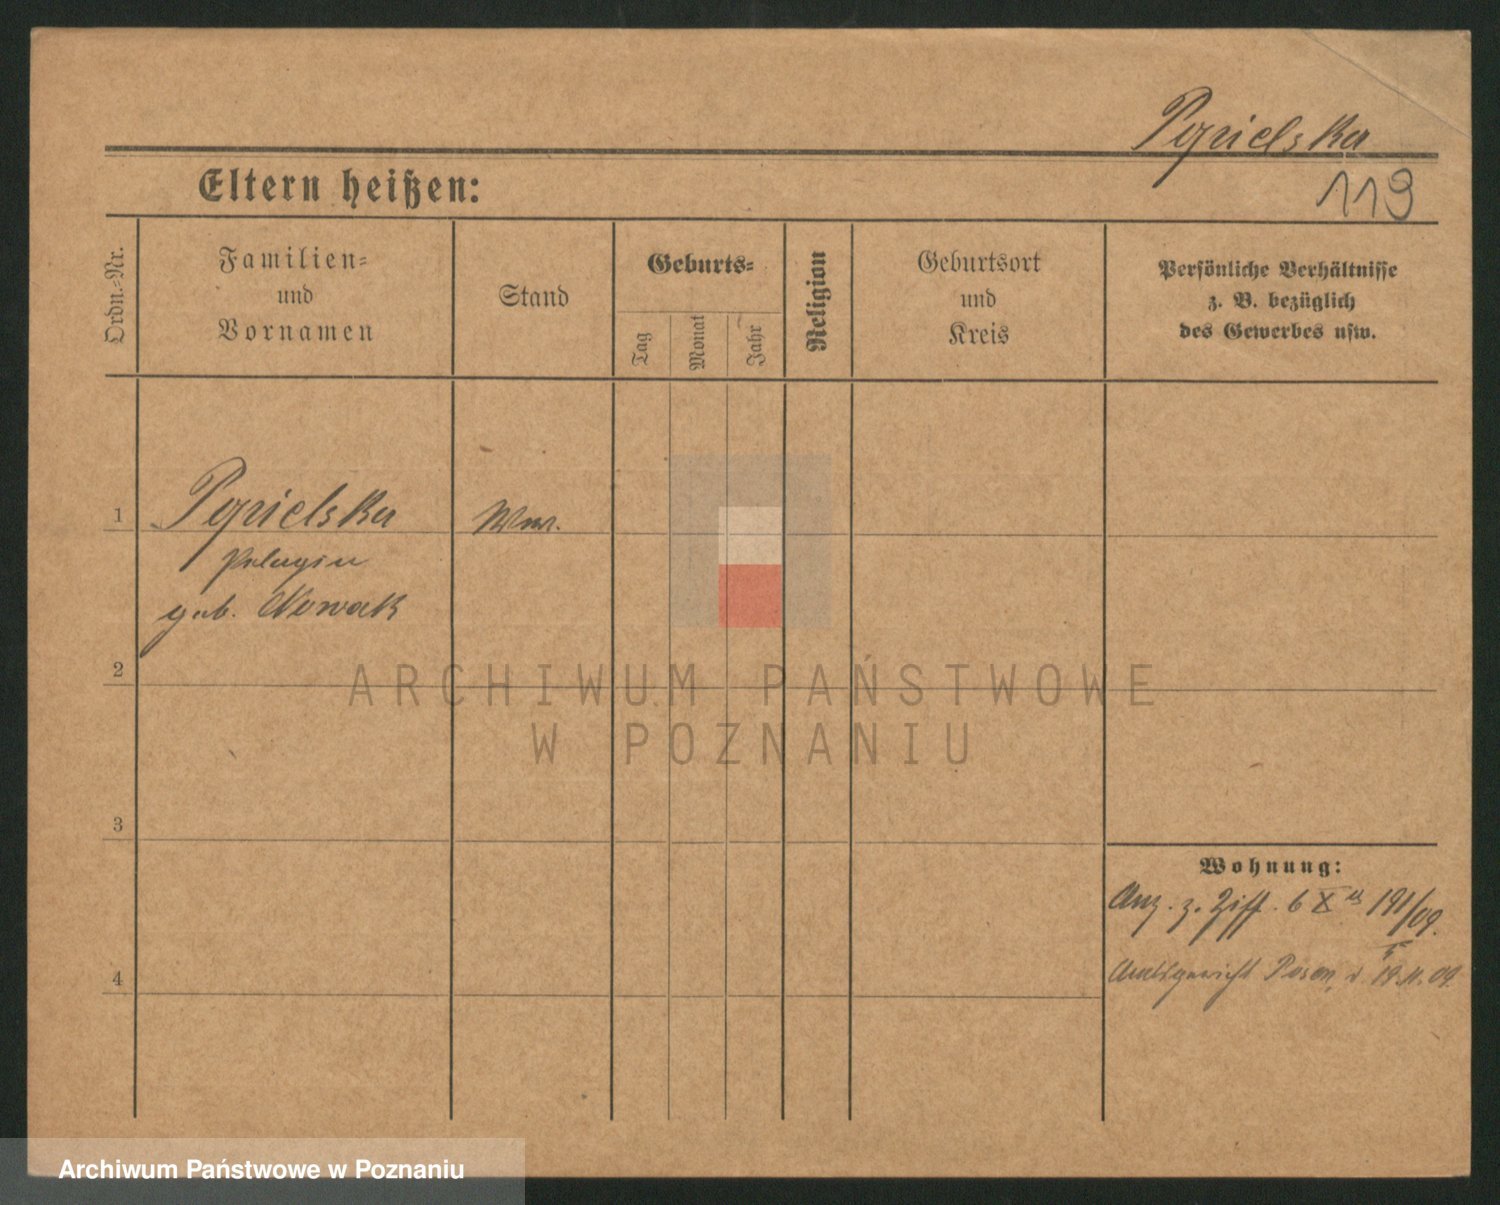 Pgrielska
119
Eltern heißen:
Ordn.-Nr.
Familien-
und
Vornamen
Stand
Geburts-
Tag
Monat
Jahr
Religion
Geburtsort
und
Kreis
Persönliche Verhältnisse
z. B. bezüglich
des Gewerbes usw.
1
Ww.
Pelagia
geb. Nowak
2
ARCHIWUM PAŃSTWOWE
W POZNANIU
3
Wohnung:
Anz. z. Ziff. 6 X 191/09.
4
Amtsgericht Posen, d. 19.11.09.
Archiwum Państwowe w Poznaniu